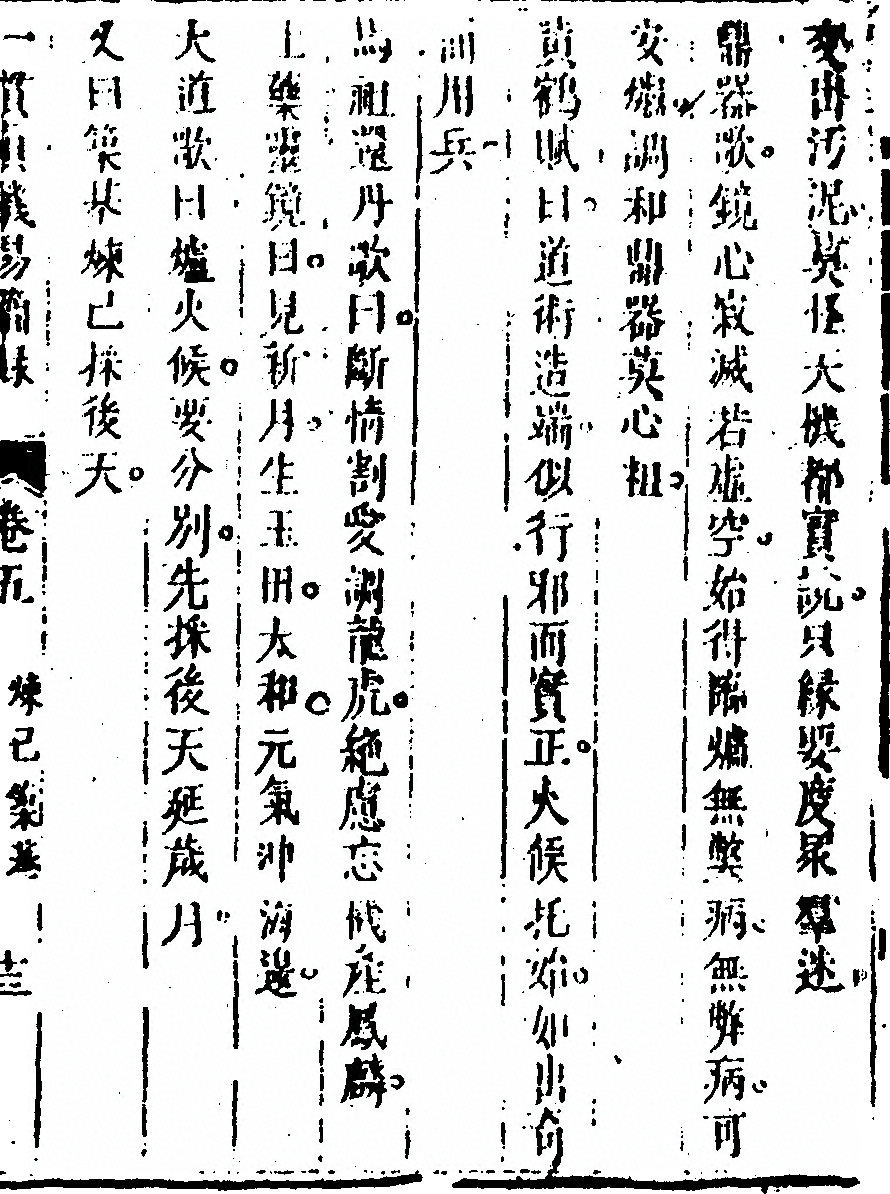 來出污泥莫怪天機都實說只緣要度眾羣迷
鼎器歌鏡心寂滅若虛空始得臨爐無弊病無弊病可
安爐調和鼎器莫心粗
黃鶴賦曰道術造端似行邪而實正火候托始如出奇
而用兵
馬祖還丹歌曰斷情割愛調龍虎絕慮忘機產鳳麟
上藥靈鏡曰見新月生玉田太和元氣沖海邊
大道歌曰爐火候要分別先採後天延歲月
又曰築基煉己採後天
一貫真機易簡錄 卷五 煉己築基 十三